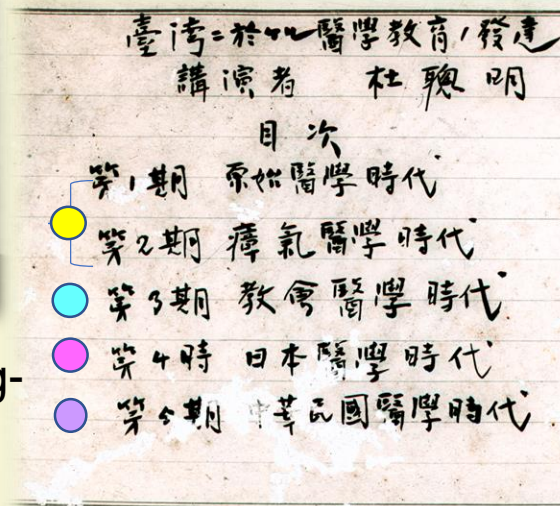 臺湾ニ於ケル醫學教育ノ發達
講演者 杜聰明
目次
第1期 原始醫學時代
第2期 瘴氣醫學時代
第3期 教會醫學時代
g-
第4時 日本醫學時代
第5期 中華民國醫學時代